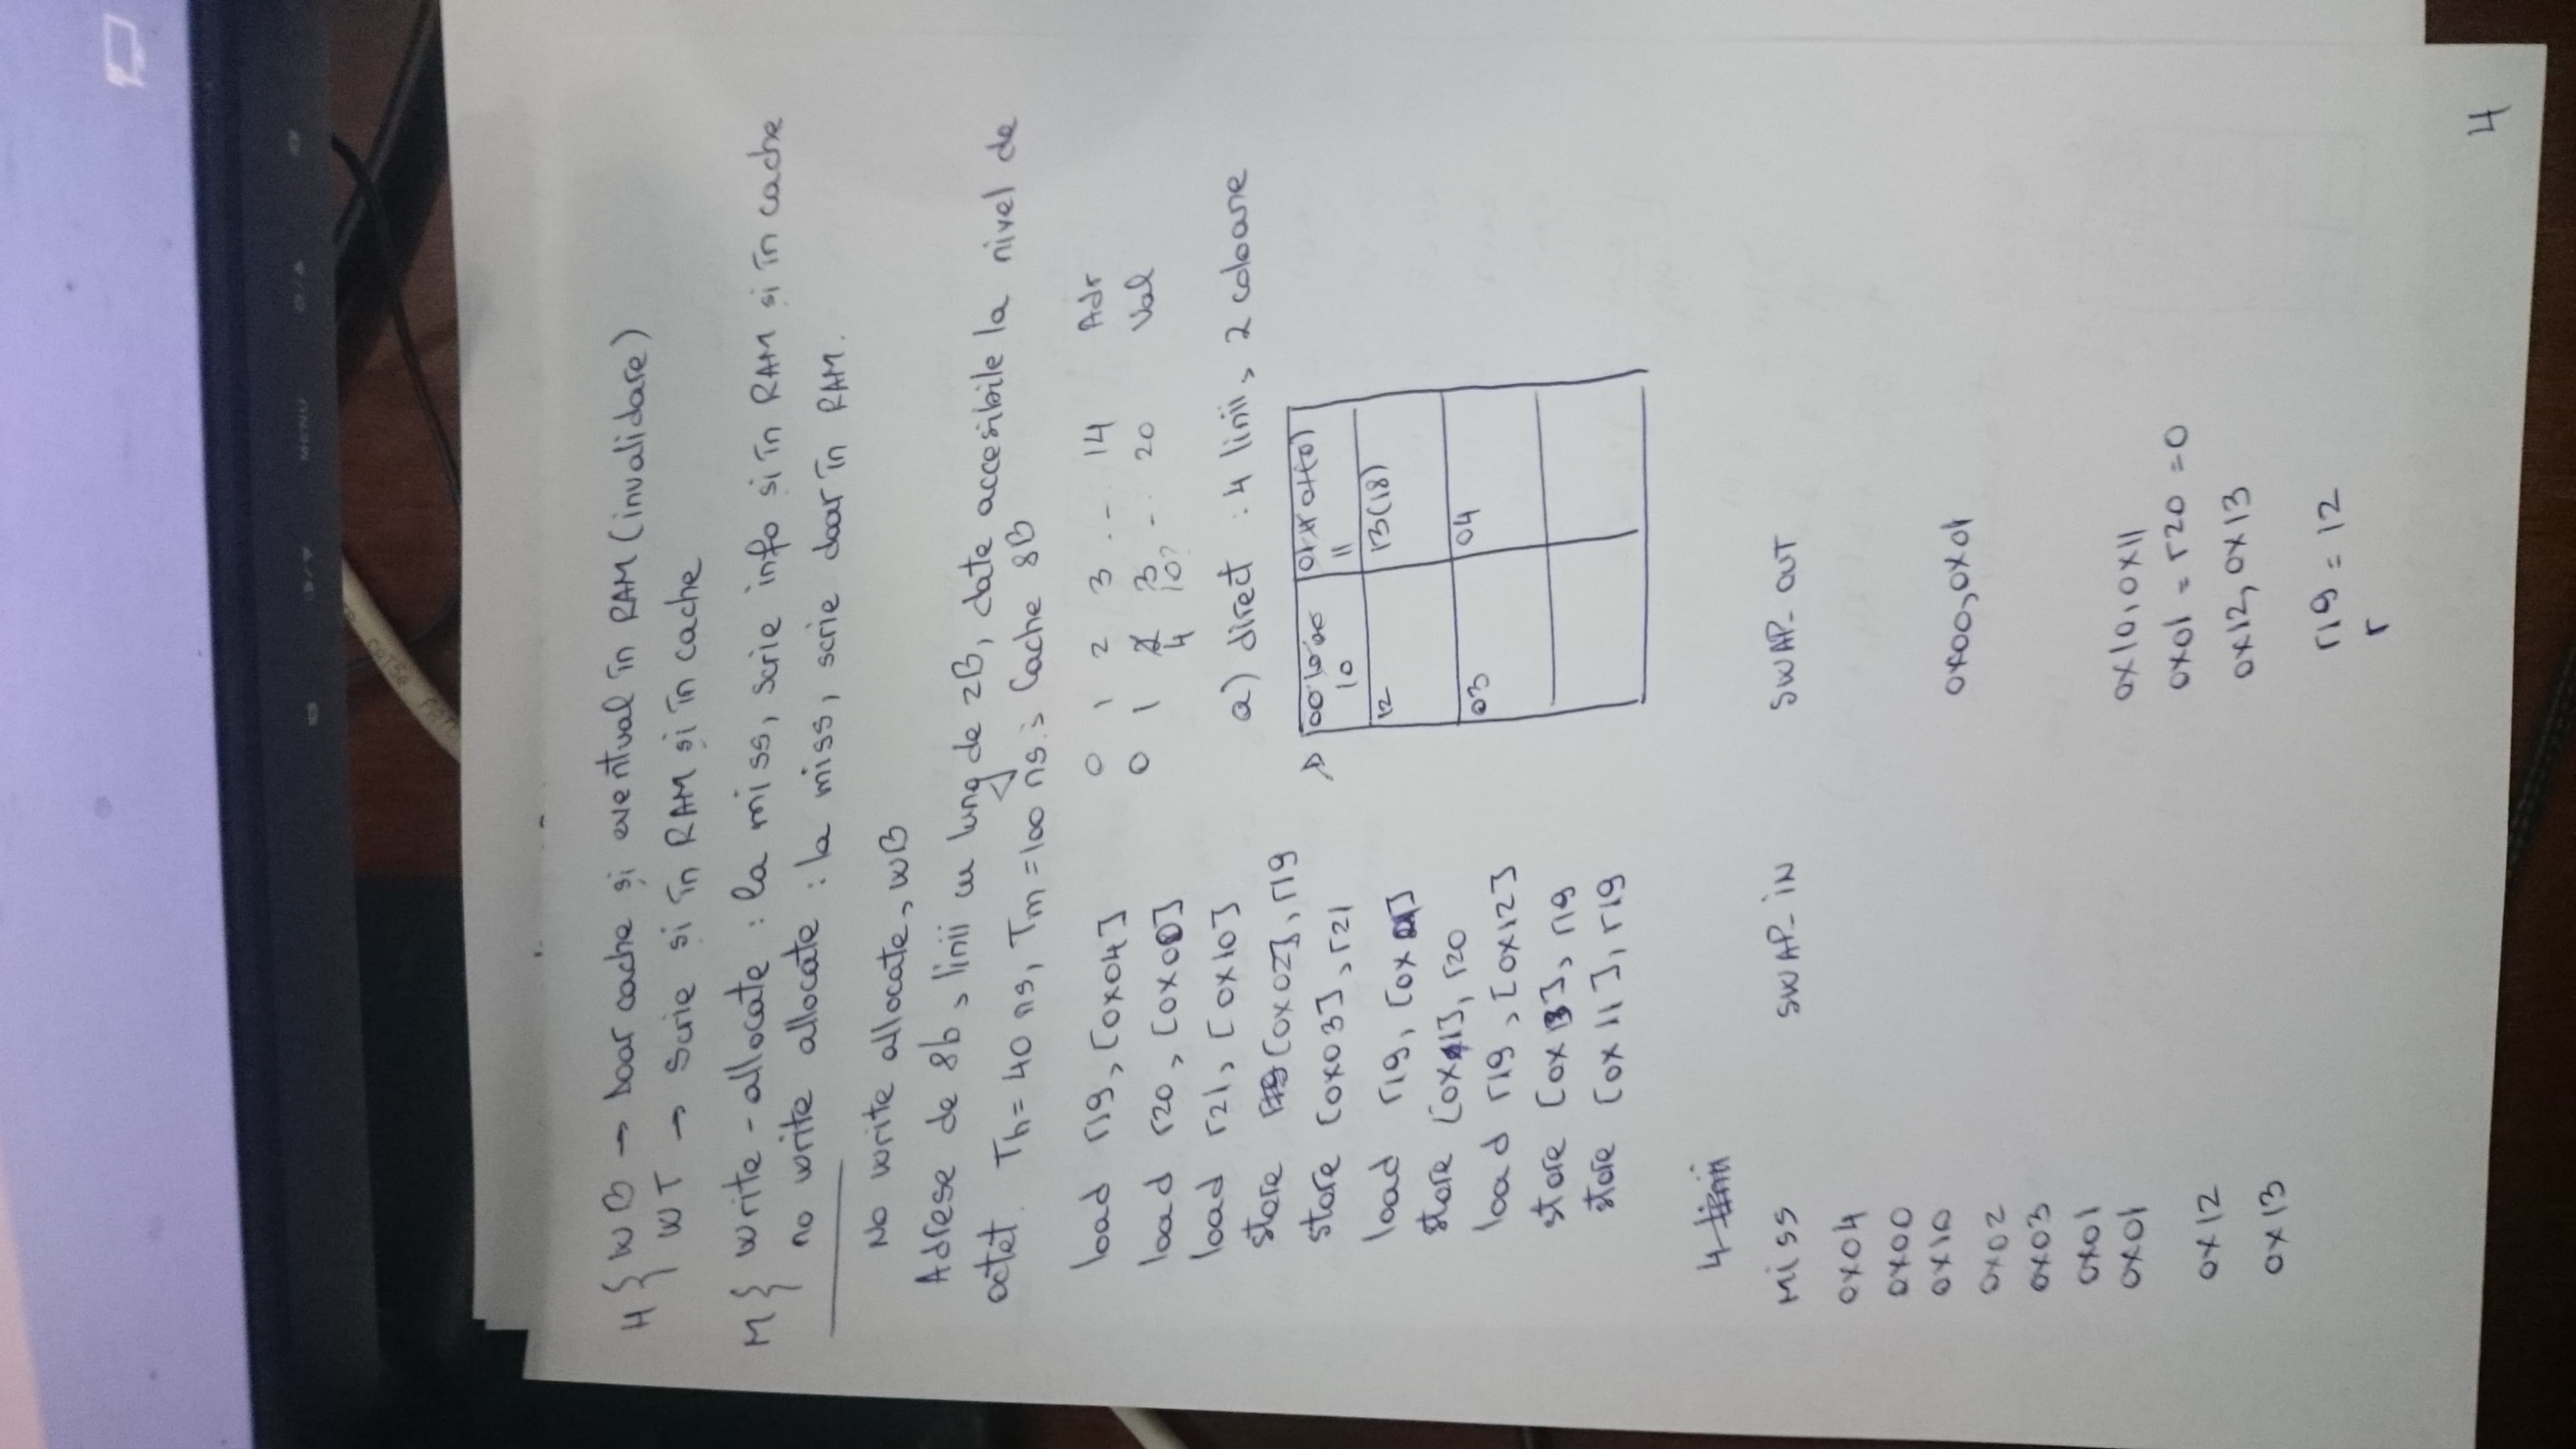 MENU
H { WB → Doar cache și eventual în RAM (invalidare)
WT → Scrie si în RAM și în cache
M { write-allocate : la miss, scrie info si în RAM și în cache
no write allocate : la miss, scrie doar în RAM.
No write allocate, WB
Adrese de 8b, linii cu lung de 2B, date accesibile la nivel de
octet. Th = 40 ns, Tm = 100 ns ; Cache 8B
load r19, [0x04]
load r20, [0x00]
load r21, [0x10]
store [0x02], r19
store [0x03], r21
load r19, [0x01]
store [0x 1], r20
load r19, [0x12]
store [0x13], r19
store [0x11], r19
0 1 2 3 .. 14 Adr
0 1 2 3 .. 20 Val
4 10?
a) direct : 4 linii, 2 coloane
00 10 00
10 11
12 13(18)
03 04
4 linii
Miss SWAP_IN SWAP_OUT
0x04
0x00
0x10 0x00, 0x01
0x02
0x03
0x01
0x01 0x10, 0x11
0x01 = r20 = 0
0x12 0x12, 0x13
0x13
r19 = 12
r
4